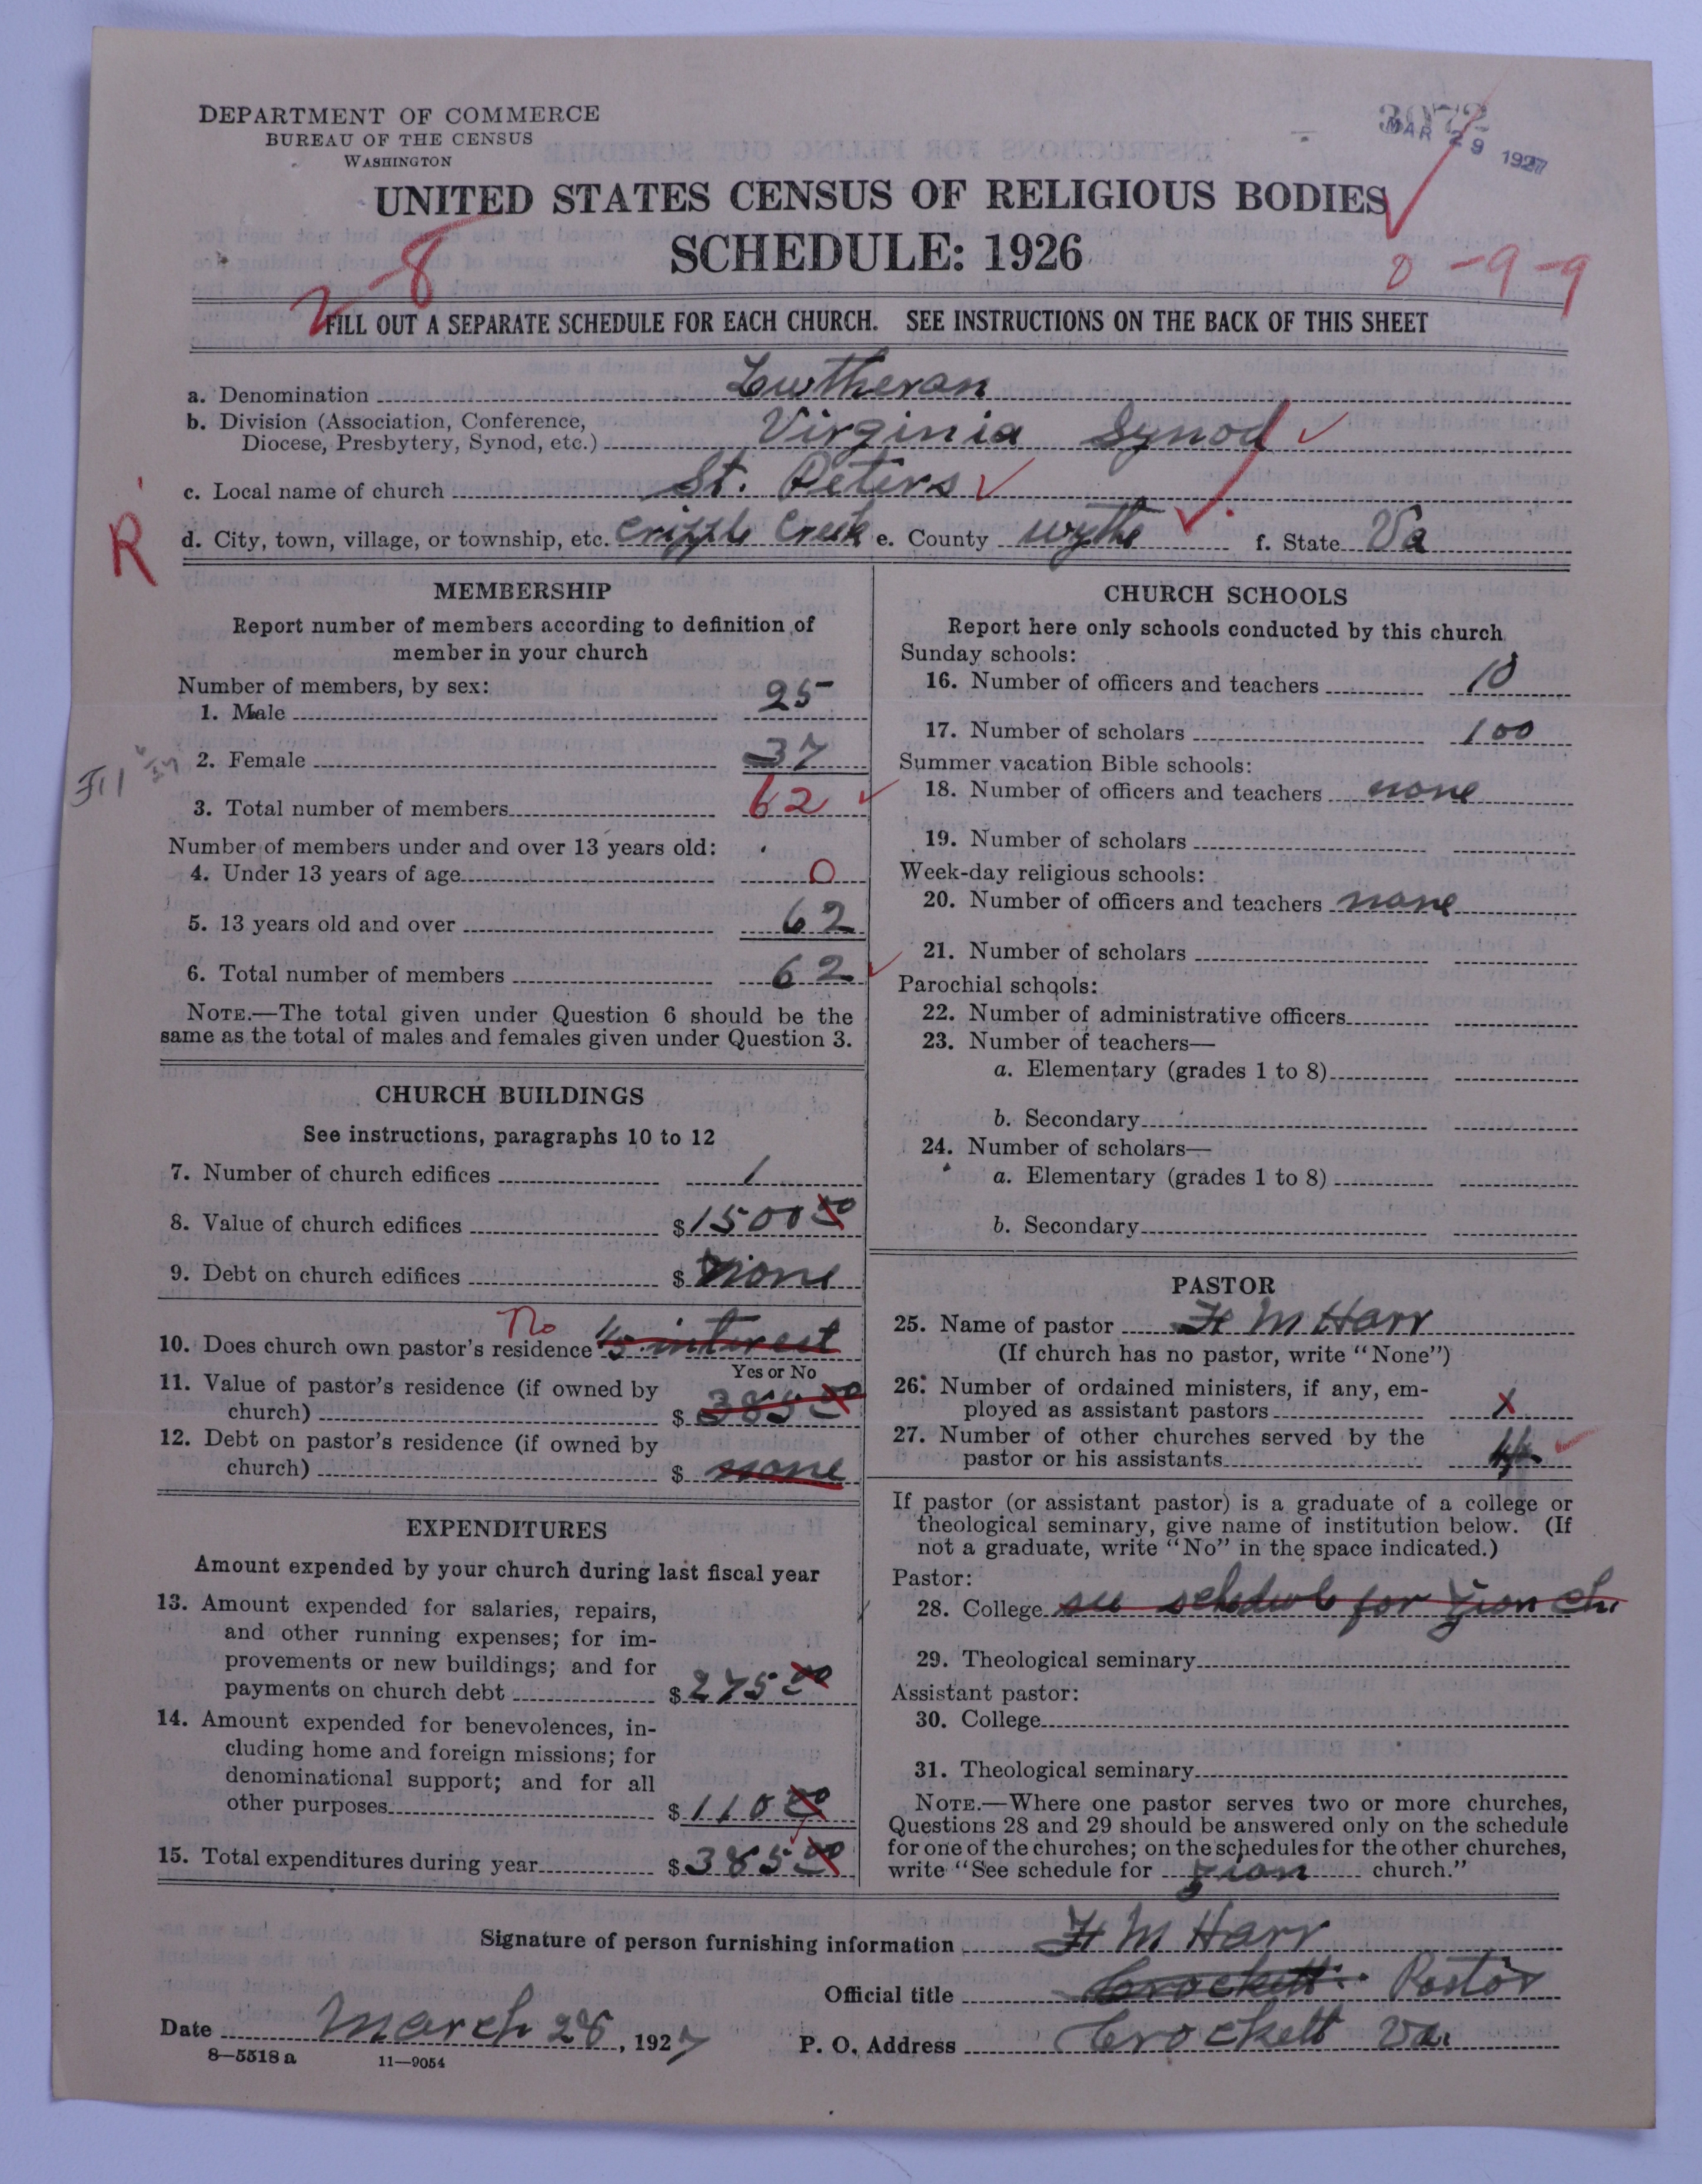 DEPARTMENT OF COMMERCE
BUREAU OF THE CENSUS
WASHINGTON
3072
MAR 29 1927
UNITED STATES CENSUS OF RELIGIOUS BODIES
SCHEDULE: 1926
2-8
0-9-9
FILL OUT A SEPARATE SCHEDULE FOR EACH CHURCH. SEE INSTRUCTIONS ON THE BACK OF THIS SHEET
a. Denomination Lutheran
b. Division (Association, Conference,
Diocese, Presbytery, Synod, etc.) Virginia Synod
c. Local name of church St. Peters
R
d. City, town, village, or township, etc. Cripple Creek e. County Wythe f. State Va
MEMBERSHIP
Report number of members according to definition of
member in your church
Number of members, by sex:
1. Male 25
2. Female 37
3. Total number of members 62
Number of members under and over 13 years old:
4. Under 13 years of age 0
5. 13 years old and over 62
6. Total number of members 62
NOTE.—The total given under Question 6 should be the
same as the total of males and females given under Question 3.
CHURCH BUILDINGS
See instructions, paragraphs 10 to 12
7. Number of church edifices 1
8. Value of church edifices $1500 00
9. Debt on church edifices $ None
10. Does church own pastor's residence No 1/5 interest
Yes or No
11. Value of pastor's residence (if owned by
church) $ 385 00
12. Debt on pastor's residence (if owned by
church) $ none
EXPENDITURES
Amount expended by your church during last fiscal year
13. Amount expended for salaries, repairs,
and other running expenses; for im-
provements or new buildings; and for
payments on church debt $275 00
14. Amount expended for benevolences, in-
cluding home and foreign missions; for
denominational support; and for all
other purposes $110 00
15. Total expenditures during year $385 00
CHURCH SCHOOLS
Report here only schools conducted by this church
Sunday schools:
16. Number of officers and teachers 10
17. Number of scholars 100
Summer vacation Bible schools:
18. Number of officers and teachers none
19. Number of scholars
Week-day religious schools:
20. Number of officers and teachers none
21. Number of scholars
Parochial schools:
22. Number of administrative officers
23. Number of teachers—
a. Elementary (grades 1 to 8)
b. Secondary
24. Number of scholars—
a. Elementary (grades 1 to 8)
b. Secondary
PASTOR
25. Name of pastor F M Harr
(If church has no pastor, write "None")
26. Number of ordained ministers, if any, em-
ployed as assistant pastors X
27. Number of other churches served by the
pastor or his assistants
If pastor (or assistant pastor) is a graduate of a college or
theological seminary, give name of institution below. (If
not a graduate, write "No" in the space indicated.)
Pastor:
28. College see schedule for Zion Ch.
29. Theological seminary
Assistant pastor:
30. College
31. Theological seminary
NOTE.—Where one pastor serves two or more churches,
Questions 28 and 29 should be answered only on the schedule
for one of the churches; on the schedules for the other churches,
write "See schedule for Zion church."
Signature of person furnishing information F M Harr
Official title Crockett Pastor
Date March 28, 1927 P. O. Address Crockett Va.
8—5518 a 11—9054